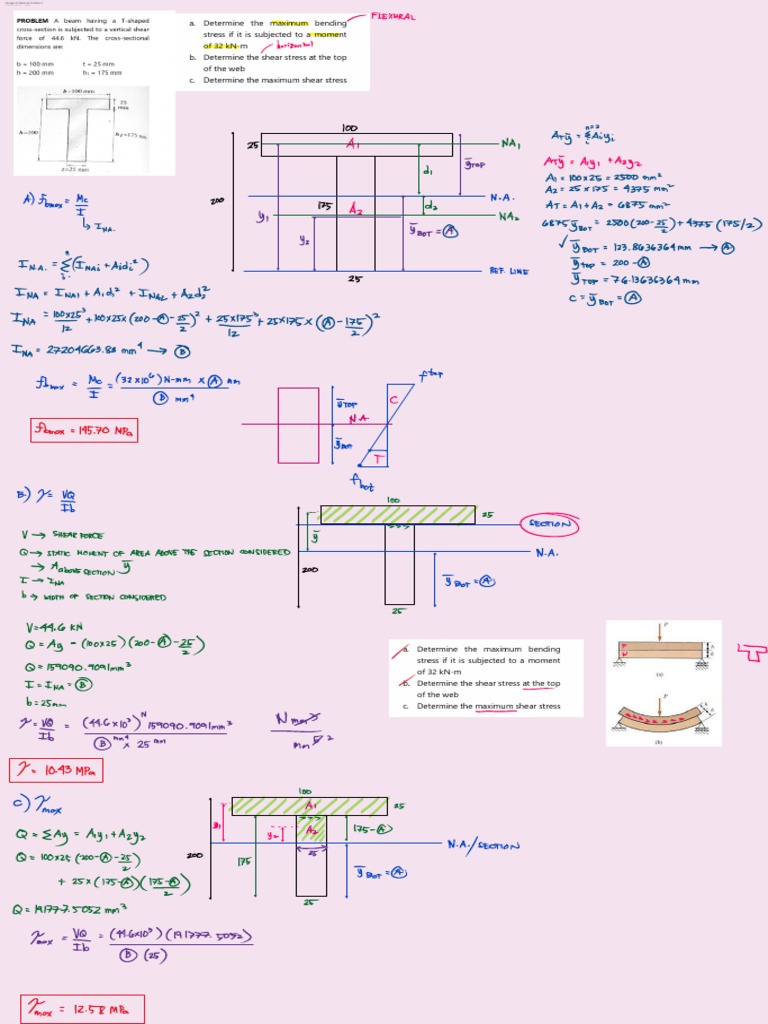 PROBLEM A beam having a T-shaped
cross-section is subjected to a vertical shear
force of 44.6 kN. The cross-sectional
dimensions are:
b = 100 mm t = 25 mm
h = 200 mm h₁ = 175 mm
b=100 mm
25
mm
h=200
h₁=175 mm
t=25 mm
a. Determine the maximum bending
stress if it is subjected to a moment
of 32 kN-m
b. Determine the shear stress at the top
of the web
c. Determine the maximum shear stress
FLEXURAL
horizontal
100
25
A₁
NA₁
ȳTOP
d₁
200
175
A₂
N.A.
d₂
NA₂
y₁
y₂
ȳBOT = A
REF. LINE
25
ATȳ = Σ Aiyi
ATȳ = A₁y₁ + A₂y₂
A₁ = 100 x 25 = 2500 mm²
A₂ = 25 x 175 = 4375 mm²
AT = A₁ + A₂ = 6875 mm²
6875 ȳBOT = 2500 (200 - 25/2) + 4375 (175/2)
ȳBOT = 123.8636364 mm → A
ȳtop = 200 - A
ȳTOP = 76.13636364 mm
C = ȳBOT = A
A) fbmax = Mc/I
↳ INA.
IN.A. = Σ (INAi + Aidi²)
INA = INA1 + A₁d₁² + INA2 + A₂d₂²
INA = 100x25³/12 + 100x25x (200 - A - 25/2)² + 25x175³/12 + 25x175 x (A - 175/2)²
INA = 27204663.83 mm⁴ → B
fbmax = Mc/I = (32x10⁶) N-mm x A mm / B mm⁴
fbmax = 145.70 MPa
ȳTOP
N.A.
ȳBOT
ftop
C
T
fbot
B.) τ = VQ/Ib
V → SHEAR FORCE
Q → STATIC MOMENT OF AREA ABOVE THE SECTION CONSIDERED
→ Aabove section ȳ
I → INA
b → WIDTH OF SECTION CONSIDERED
100
25
SECTION
ȳ
N.A.
200
ȳBOT = A
25
V = 44.6 kN
Q = Ay = (100x25) (200 - A - 25/2)
Q = 159090.9091 mm³
I = INA = B
b = 25mm
τ = VQ/Ib = (44.6x10³) N 159090.9091 mm³ / B mm⁴ x 25 mm
N mm³ / mm⁵ 2
τ = 10.43 MPa
a. Determine the maximum bending
stress if it is subjected to a moment
of 32 kN-m
b. Determine the shear stress at the top
of the web
c. Determine the maximum shear stress
P
(a)
P
(b)
C) τmax
Q = ΣAy = A₁y₁ + A₂y₂
Q = 100x25 (200 - A - 25/2)
+ 25 x (175 - A) (175 - A / 2)
Q = 191777.5052 mm³
100
A₁
25
y₁
A₂
y₂
175 - A
N.A./SECTION
200
175
25
ȳBOT = A
25
τmax = VQ/Ib = (44.6x10³) (191777.5052) / B (25)
τmax = 12.58 MPa